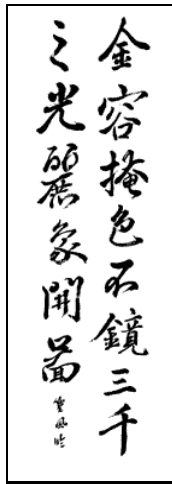 金容掩色不鏡三千
之光麗象開圖